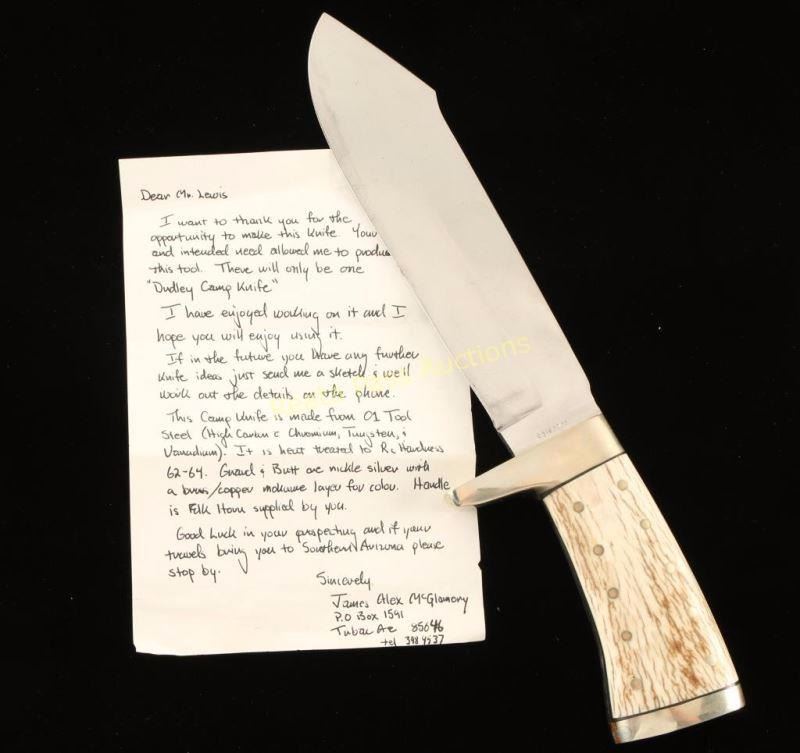 Dear Mr. Lewis
I want to thank you for the
opportunity to make this Knife. Your
and intended need allowed me to produce
this tool. There will only be one
"Dudley Camp Knife"
I have enjoyed working on it and I
hope you will enjoy using it.
If in the future you have any further
Knife ideas just send me a sketch & we'll
work out the details on the phone.
This Camp Knife is made from O1 Tool
Steel (High Carbon c Chromium, Tungsten, &
Vanadium). It is heat treated to Rc Hardness
62-64. Guard & Butt are nickle silver with
a brass/copper mokume layer for color. Handle
is Elk Horn supplied by you.
Good Luck in your prospecting and if your
travels bring you to Southern Arizona please
stop by.
Sincerely,
James Alex McGlamory
P.O Box 1591
Tubac Az 85646
tel 398 9537
Auctions